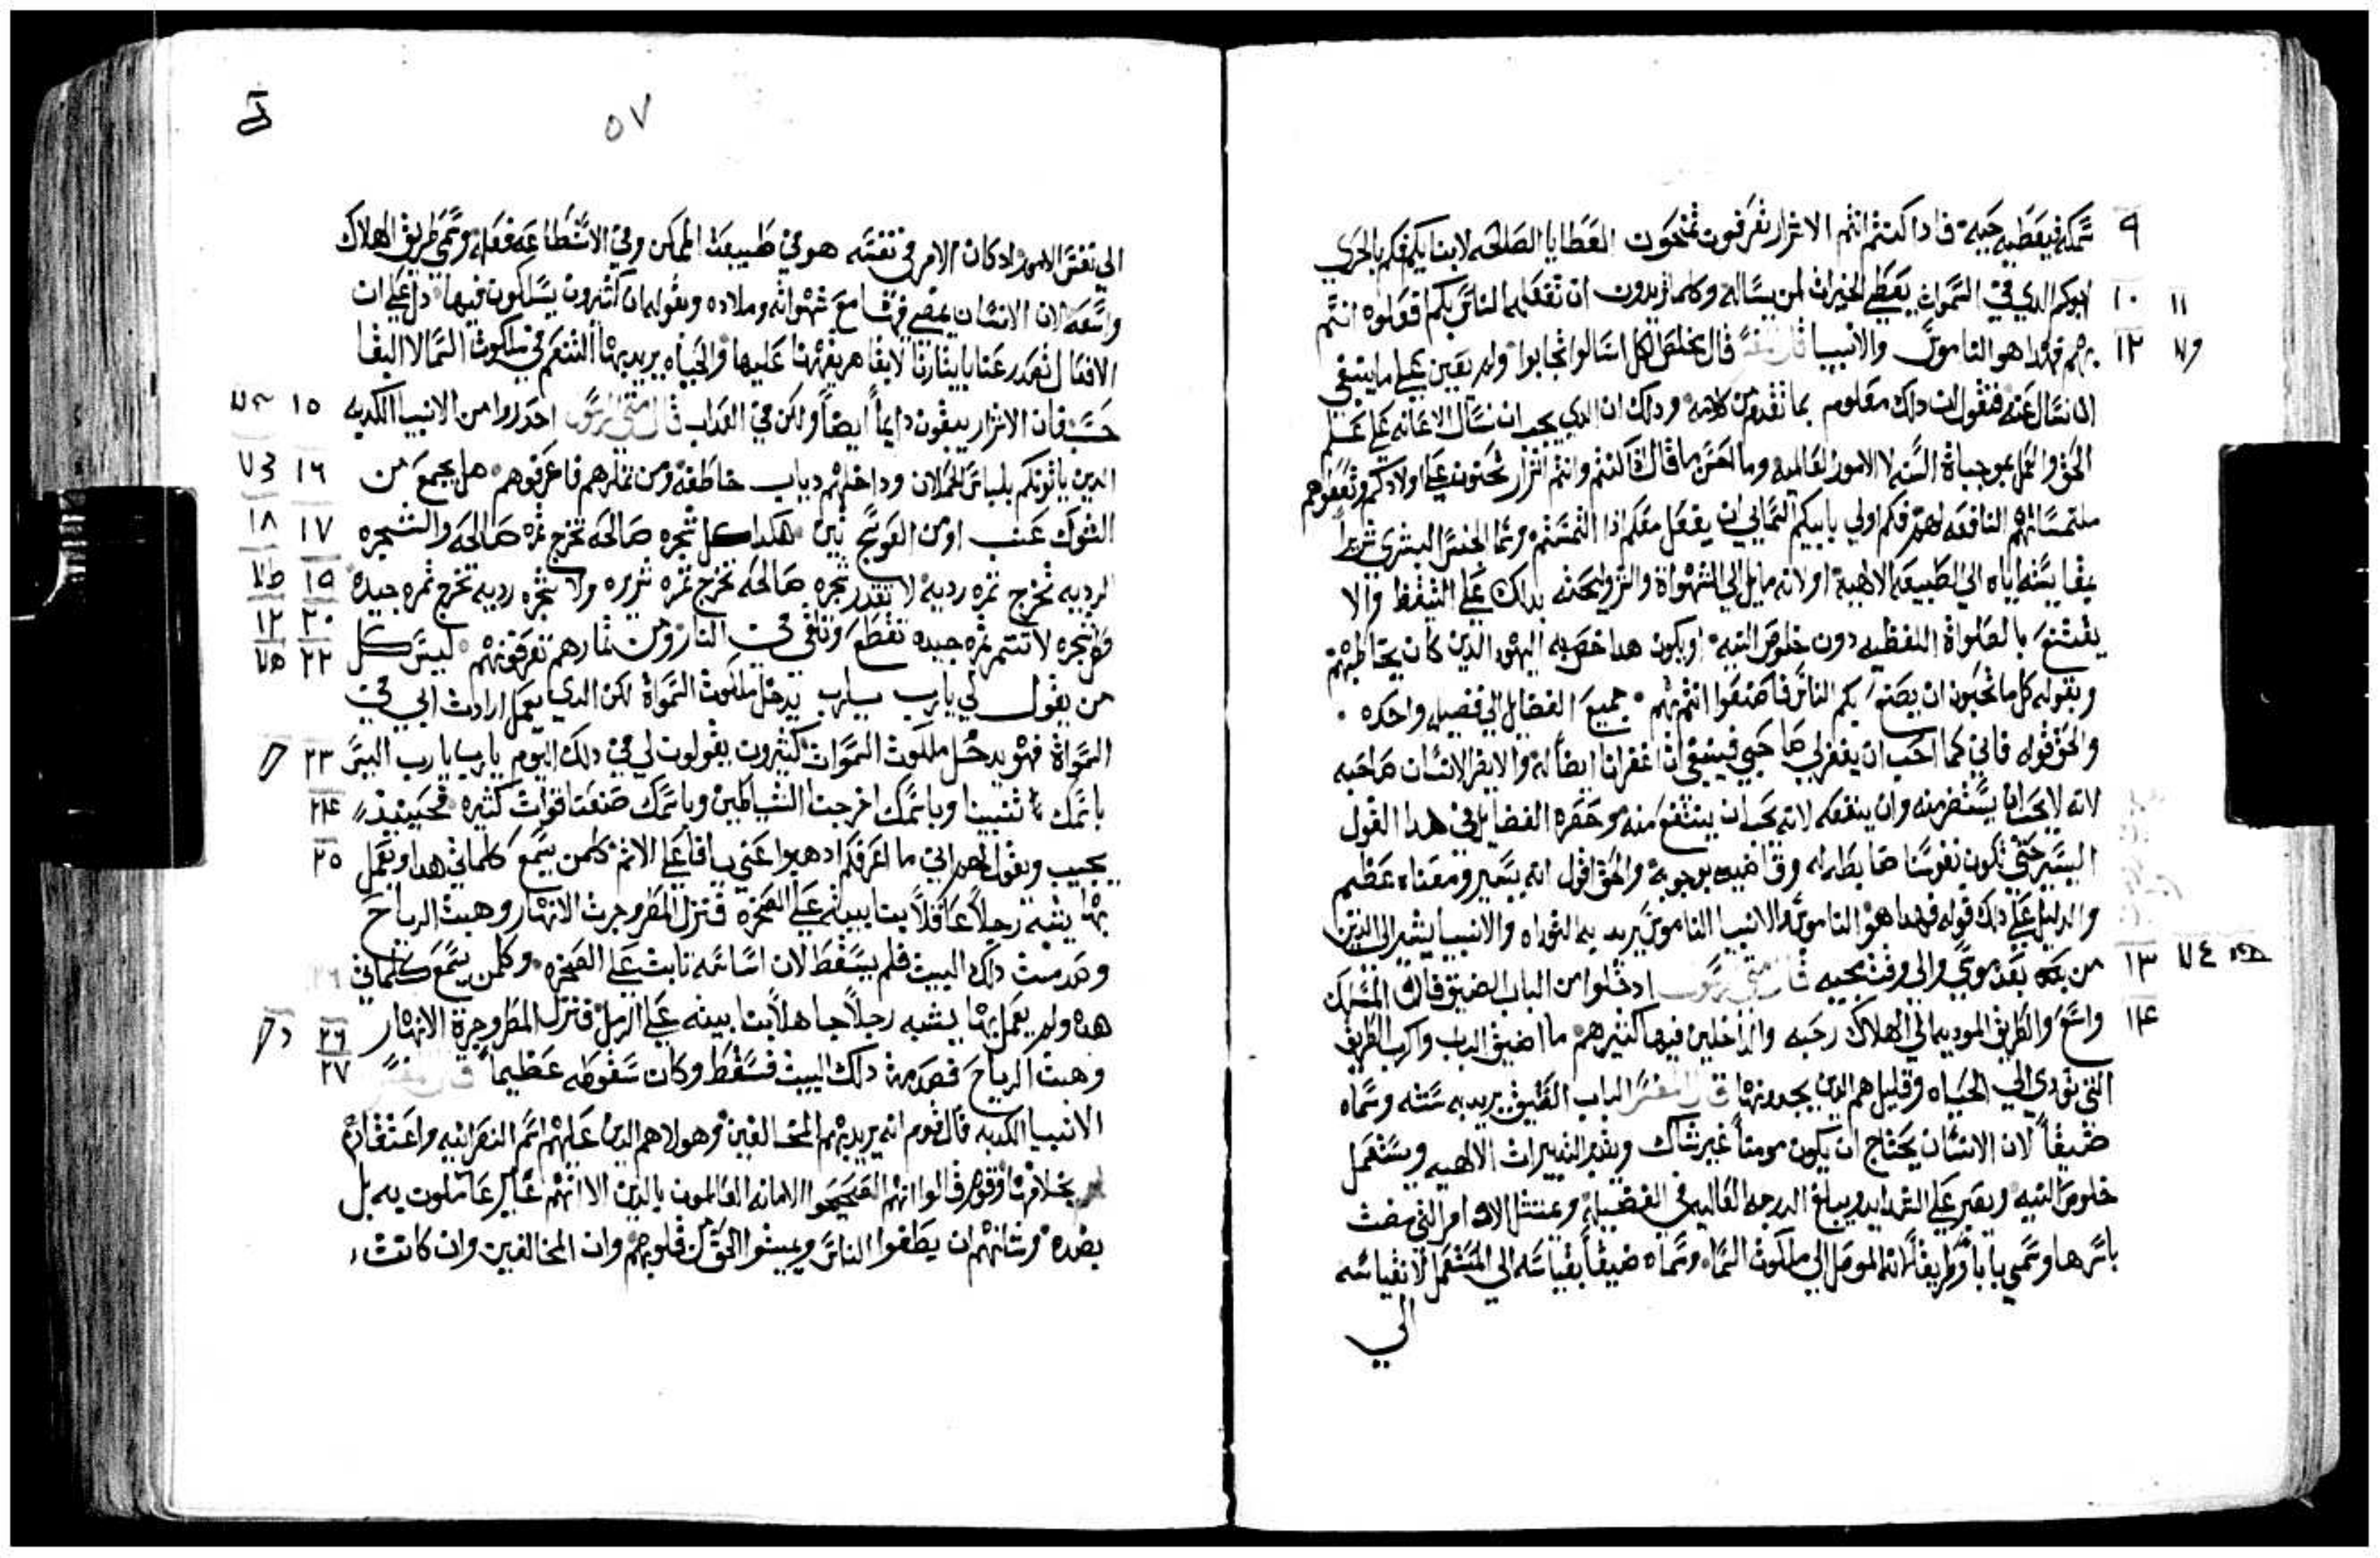 ٩ سمكه فيعطيه حيه فاذا كنتم انتم الاشرار تعرفون تمنحون العطايا الصالحه لابنايكم فكم بالحري
١٠ ١١ ابوكم الدي في السموات يعطي الخيرات لمن يساله وكلما تريدون ان تفعله الناس بكم افعلوه انتم
١٢ بهم فهدا هو الناموس والانبيا قال المفسر قال مخلص الكل اسالوا تجابوا ولم يعين على ما ينبغي
ان نسال عنه فنقول ان دلك معلوم بما تقدم من كلامه ودلك ان الدي يجب ان نسال الاعانه على عمل
الحق والعمل بموجباة السنه لا الامور العالميه وما احسن ما قال ان كنتم وانتم اشرار تحنون على اولادكم وتعطوهم
ملتمساتهم النافعه لهم فكم اولي بابيكم السماني ان يفعل معكم اذا التمستم وسما الجنس البشرى شريراً
بقايسته اياه الي الطبيعه الالاهية او لانه مايل الي الشهواة والشر وليحثه بدلك على التيقظ والا
يقتنع بالصلواة اللفظيه دون خلوص النيه او يكون هدا خص به اليهود الدين كان يخاطبهم
وبقوله كل ما تحبون ان يصنع بكم الناس فاصنعوا انتم بهم جميع الفضايل الي فضيله واحده
والحق قوله فاني كما احب ان يغفر لي صاحبي فينبغي ان اغفر انا ايضاً له والا يضر الانسان صاحبه
لانه لا يحب ان يستضر منه وان ينفعه لانه يحب ان ينتفع منه وحصره الفضايل في هدا القول
اليسير حتي تكون نفوسنا ضابطه له وقاضيه بوجوبه والحق اقول انه يسير ومعناه عظيم
والدليل على دلك قوله فهدا هو الناموس والانبيا الناموس يريد به التوراه والانبيا يشير الى الدين
١٣ من بعد موسي والي وقت مجيه قال متي الرسول ادخلوا من الباب الضيق فان المسلك
١٤ واسع والطريق الموديه الي الهلاك رحبه والداخلين فيها كثير هم ما اضيق الباب واكرب الطريق
التي تودي الي الحياه وقليل هم الدين يجدونها قال المفسر الباب الضيق يريد به سنته وسماه
ضيقاً لان الانسان يحتاج ان يكون مومناً غير شاك ويدبر التدبيرات الالاهيه ويستعمل
خلوص النيه ويصبر على الشدايد ويبلغ الدرجه العاليه في الفضيله ويمتثل الاوامر التي مضت
باسرها وسمي باباً وطريقاً لانه الموصل الى ملكوت السما وسماه ضيقاً بقياسه الي المستعمل لا بقياسه
الي
٥٧
الي نفس الامور اد كان الامر في نفسه هو في طبيعت الممكن وفي الاستطاعه فعله وسمي طريق الهلاك
واسعه لان الانسان يمضي فيها مع شهواته وملاده وبقوله ان كثيرون يسلكون فيها دل على ان
الافعال تصدر عنا بايثارنا لا بقاهر يقهرنا عليها والحياه يريد بها التنعم في ملكوت السما لا البقا
١٥ حسب فان الاشرار يبقون دايماً ايضاً ولكن في العداب قال متي الرسول احدروا من الانبيا الكدبه
١٦ الدين ياتونكم بلباس الحملان وداخلهم دياب خاطفه ومن ثمارهم فاعرفوهم هل يجمع من
١٧ ١٨ الشوك عنب او من العوسج تين هكدا كل شجره صالحه تخرج ثمره صالحه والشجره
١٩ الرديه تخرج ثمره رديه لا تقدر شجره صالحه تخرج ثمره شريره ولا شجره رديه تخرج ثمره جيده
٢٠ ١٢ فكل شجره لا تثمر ثمره جيده تقطع وتلقي في النار ومن ثمارهم تعرفونهم ليس كل
٢٢ من يقول لي يا رب يا رب يدخل ملكوت السمواة لكن الدي يعمل ارادت ابي في
٢٣ السمواة فهو يدخل ملكوت السموات كثيرون يقولون لي في دلك اليوم يا رب يا رب اليس
٢٤ باسمك تنبينا وباسمك اخرجنا الشياطين وباسمك صنعنا قوات كثيره فحينيد
٢٥ يجيب ويقول لهم اني ما اعرفكم ادهبوا عني يا فاعلي الاثم كلمن يسمع كلماتي هدا ويعمل
بها يشبه رجلاً عاقلاً بنا بيته على الصخره فنزل المطر وجرت الانهار وهبت الرياح
وصدمت دلك البيت فلم يسقط لان اساسه ثابت على الصخره وكلمن يسمع كلماتي
٢٦ هده ولم يعمل بها يشبه رجلاً جاهلاً بنا بيته على الرمل فنزل المطر وجرة الانهار
٢٧ وهبت الرياح فصدمت دلك البيت فسقط وكان سقوطه عظيماً قال المفسر
الانبيا الكدبه قال قوم انه يريد بهم المخالفين وهولا هم الدين عليهم اسم النصرانيه واعتقادهم
بخلافها وقوم قالوا انهم الصحيحوا الامانه العالمون بالدين الا انهم غير عاملون به بل
بضده وشانهم ان يطغوا الناس ويميتوا الحق من قلوبهم وان المخالفين وان كانت